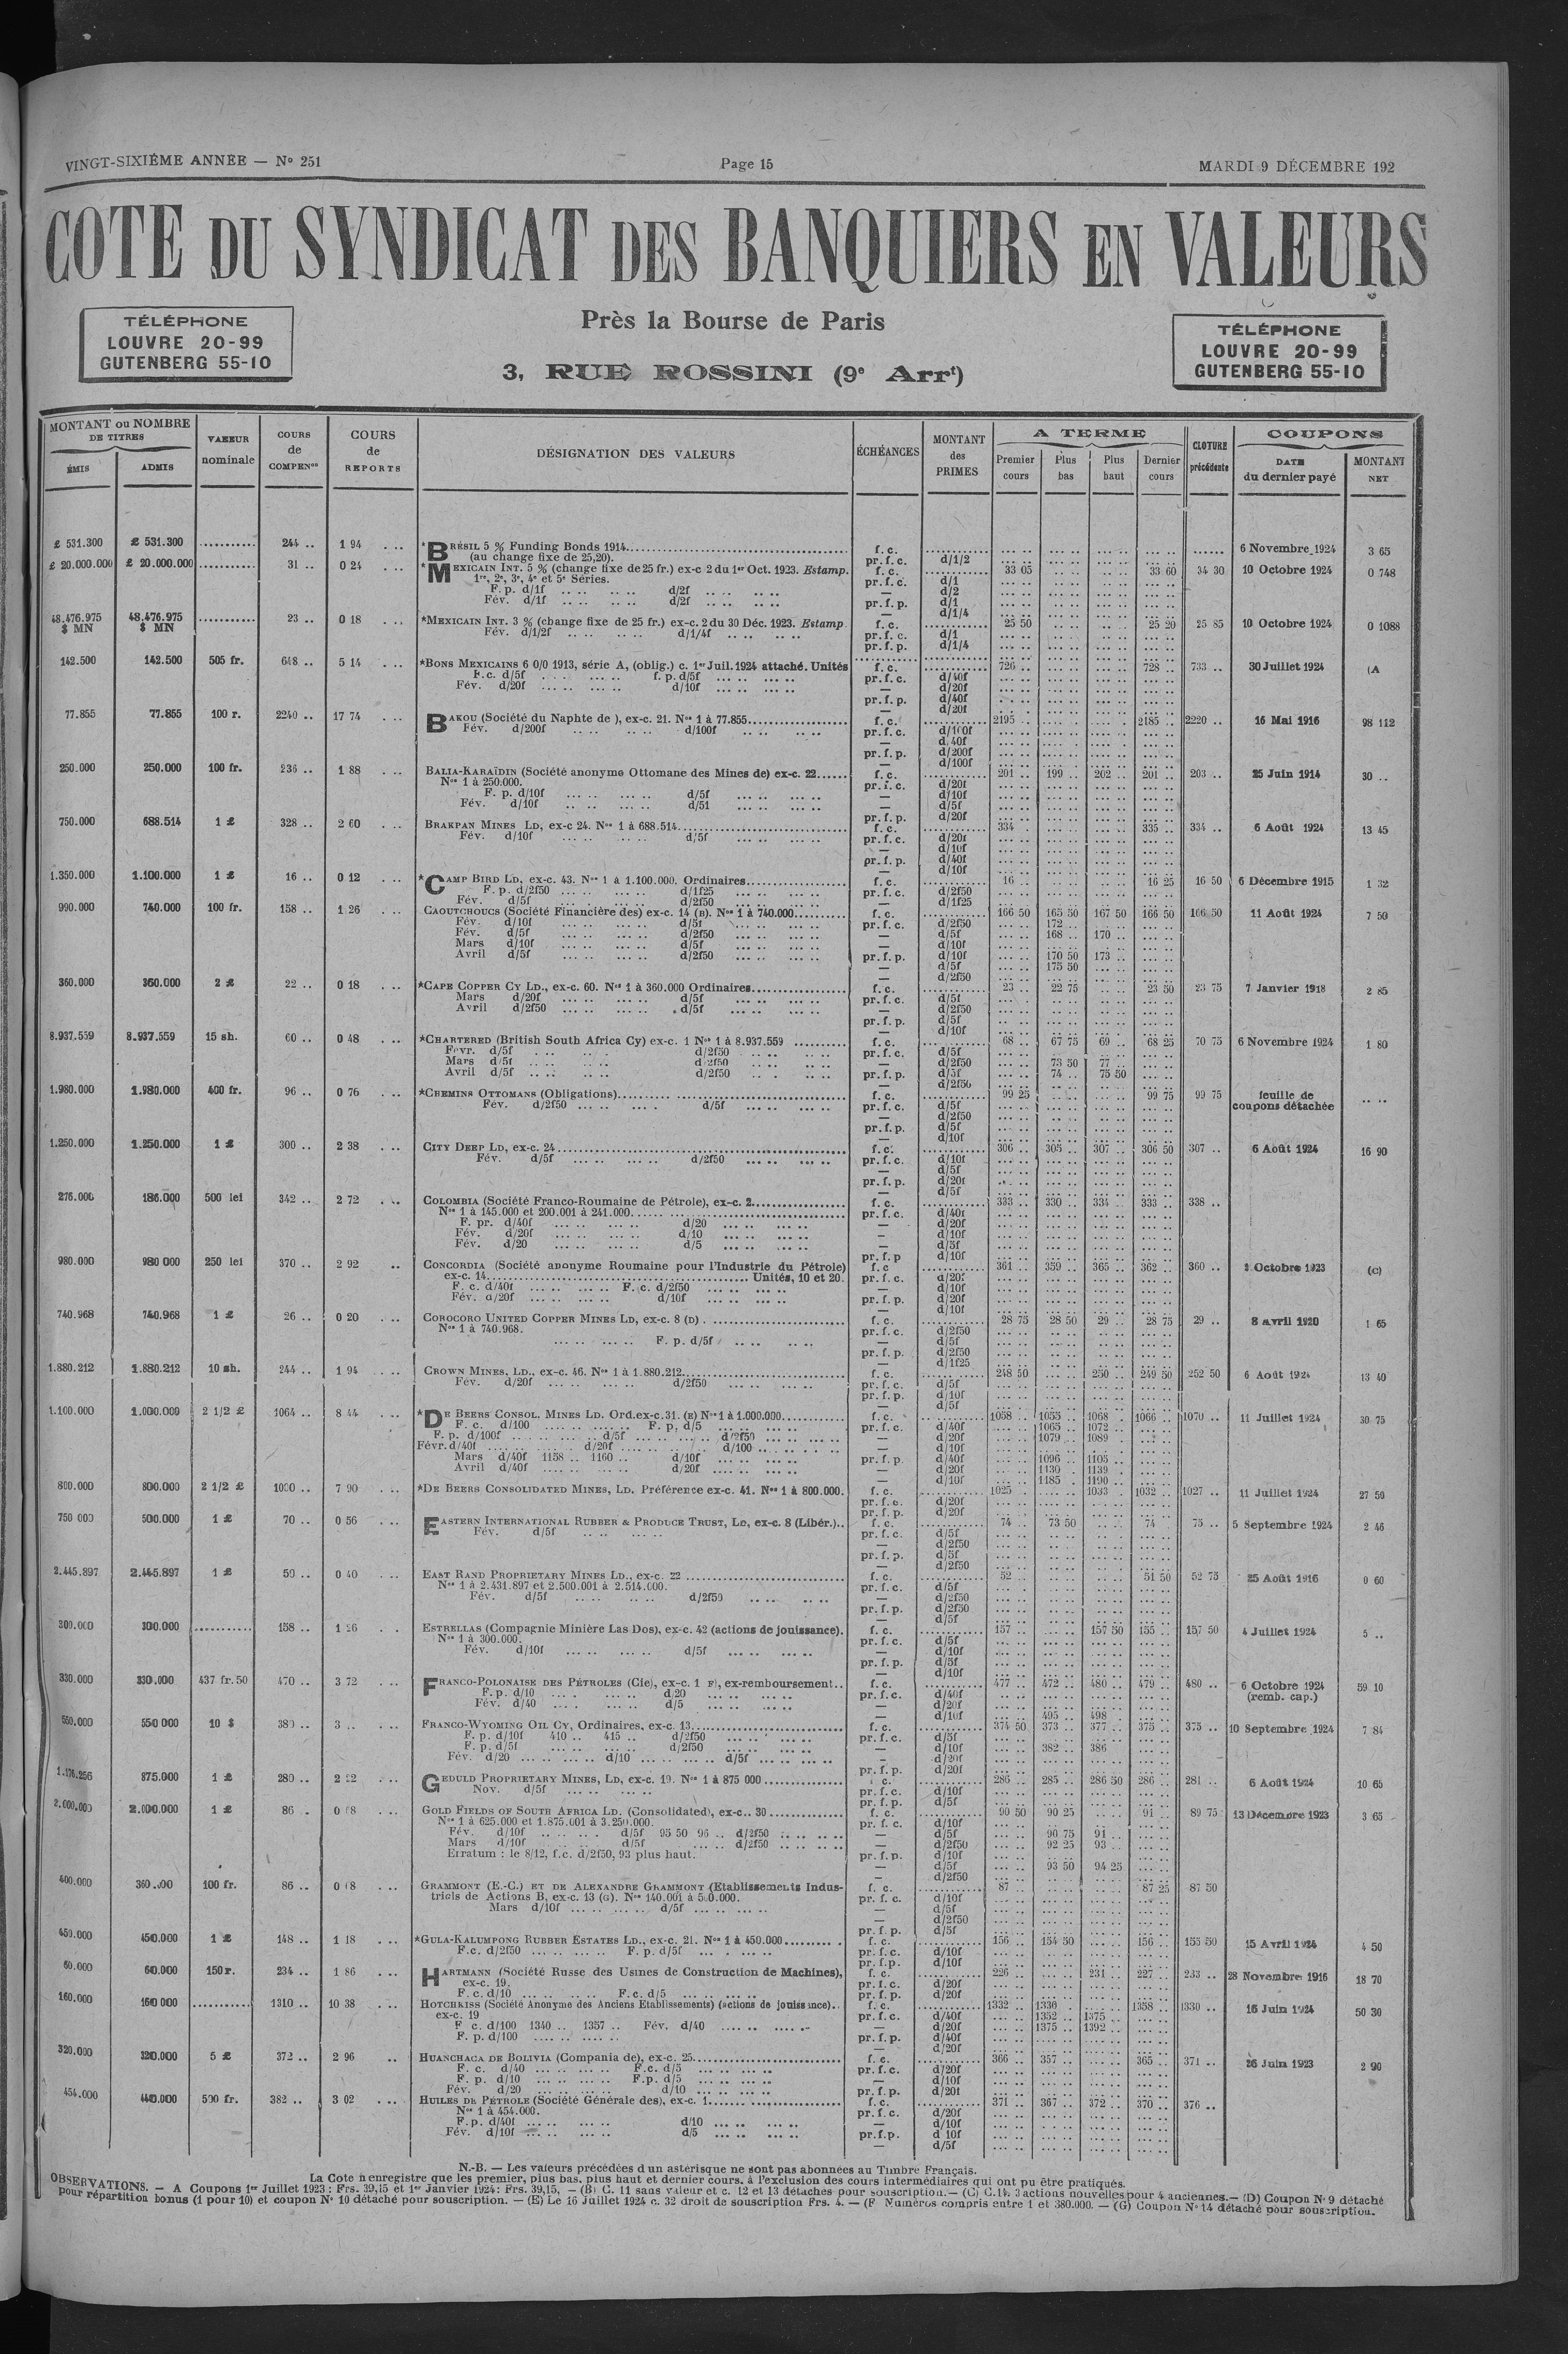 VINGT-SIXIÈME ANNÉE — N° 251
Page 15
MARDI 9 DÉCEMBRE 192
COTE DU SYNDICAT DES BANQUIERS EN VALEURS
Près la Bourse de Paris
3, RUE ROSSINI (9e Arrt)
TÉLÉPHONE
LOUVRE 20-99
GUTENBERG 55-10
TÉLÉPHONE
LOUVRE 20-99
GUTENBERG 55-10
MONTANT ou NOMBRE DE TITRES
ÉMIS ADMIS
VALEUR nominale
COURS de COMPENon
COURS de REPORTS
DÉSIGNATION DES VALEURS
ÉCHÉANCES
MONTANT des PRIMES
A TERME
Premier cours Plus bas Plus haut Dernier cours
CLOTURE précédente
COUPONS
DATE du dernier payé MONTANT NET
£ 531.300 £ 531.300 ........... 244 .. 1 94 *BRÉSIL 5 % Funding Bonds 1914 f. c. 6 Novembre 1924 3 65
(au change fixe de 25,20). pr. f. c. d/1/2
£ 20.000.000 £ 20.000.000 ........... 31 .. 0 24 *MEXICAIN INT. 5 % (change fixe de 25 fr.) ex-c 2 du 1er Oct. 1923. Estamp. f. c. 33 05 33 60 34 30 10 Octobre 1924 0 748
1re, 2e, 3e, 4e et 5e Séries. pr. f. c. d/1
F. p. d/1f d/2f — d/2
Fév. d/1f d/2f pr. f. p. d/1
— d/1/4
48.476.975 $ MN 48.476.975 $ MN ........... 23 .. 0 18 *MEXICAIN INT. 3 % (change fixe de 25 fr.) ex-c. 2 du 30 Déc. 1923. Estamp f. c. 25 50 25 20 25 85 10 Octobre 1924 0 1088
Fév. d/1/2f d/1/4f pr. f. c. d/1
pr. f. p. d/1/4
142.500 142.500 505 fr. 648 .. 5 14 *BONS MEXICAINS 6 0/0 1913, série A, (oblig.) c. 1er Juil. 1924 attaché. Unités f. c. 726 .. 728 .. 733 .. 30 Juillet 1924 (A
F.c. d/5f f. p. d/5f pr. f. c. d/40f
Fév. d/20f d/10f — d/20f
pr. f. p. d/40f
— d/20f
77.855 77.855 100 r. 2240 .. 17 74 BAKOU (Société du Naphte de ), ex-c. 21. Nos 1 à 77.855 f. c. 2195 .. 2185 .. 2220 .. 16 Mai 1916 98 112
Fév. d/200f d/100f pr. f. c. d/100f
— d/40f
pr. f. p. d/200f
— d/100f
250.000 250.000 100 fr. 236 .. 1 88 BALIA-KARAÏDIN (Société anonyme Ottomane des Mines de) ex-c. 22 f. c. 201 .. 199 .. 202 .. 201 .. 203 .. 25 Juin 1914 30 ..
Nos 1 à 250.000. pr. f. c. d/20f
F. p. d/10f d/5f — d/10f
Fév. d/10f d/5f — d/5f
pr. f. p. d/20f
750.000 688.514 1 £ 328 .. 2 60 BRAKPAN MINES LD, ex-c 24. Nos 1 à 688.514 f. c. 334 . 335 .. 334 .. 6 Août 1924 13 45
Fév. d/10f d/5f pr. f. c. d/20f
— d/10f
pr. f. p. d/40f
— d/10f
1.350.000 1.100.000 1 £ 16 .. 0 12 *CAMP BIRD LD, ex-c. 43. Nos 1 à 1.100.000. Ordinaires f. c. 16 .. 16 25 16 50 6 Décembre 1915 1 32
F. p. d/2f50 d/1f25 pr. f. c. d/2f50
Fév. d/5f d/2f50 — d/1f25
990.000 740.000 100 fr. 158 .. 1 26 CAOUTCHOUCS (Société Financière des) ex-c. 14 (B). Nos 1 à 740.000 f. c. 166 50 165 50 167 50 166 50 166 50 11 Août 1924 7 50
Fév. d/10f d/5f pr. f. c. d/2f50 172 ..
Fév. d/5f d/2f50 — d/5f 168 .. 170 ..
Mars d/10f d/5f — d/10f
Avril d/5f d/2f50 pr. f. p. d/10f 170 50 173 ..
— d/5f 175 50
— d/2f50
360.000 360.000 2 £ 22 .. 0 18 *CAPE COPPER CY LD., ex-c. 60. Nos 1 à 360.000 Ordinaires f. c. 23 .. 22 75 23 50 23 75 7 Janvier 1918 2 85
Mars d/20f d/5f pr. f. c. d/5f
Avril d/2f50 d/5f — d/2f50
pr. f. p. d/5f
— d/10f
8.937.559 8.937.559 15 sh. 60 .. 0 48 *CHARTERED (British South Africa Cy) ex-c. 1 Nos 1 à 8.937.559 f. c. 68 .. 67 75 69 .. 68 25 70 75 6 Novembre 1924 1 80
Févr. d/5f d/2f50 pr. f. c. d/5f
Mars d/5f d/2f50 — d/2f50 73 50 77 ..
Avril d/5f d/2f50 pr. f. p. d/5f 74 .. 75 50
— d/2f50
1.980.000 1.980.000 400 fr. 96 .. 0 76 *CHEMINS OTTOMANS (Obligations) f. c. 99 25 99 75 99 75 feuille de coupons détachée
Fév. d/2f50 d/5f pr. f. c. d/5f
— d/2f50
pr. f. p. d/5f
— d/10f
1.250.000 1.250.000 1 £ 300 .. 2 38 CITY DEEP LD, ex-c. 24 f. c. 306 .. 305 .. 307 .. 306 50 307 .. 6 Août 1924 16 90
Fév. d/5f d/2f50 pr. f. c. d/10f
— d/5f
pr. f. p. d/20f
— d/5f
276.000 186.000 500 lei 342 .. 2 72 COLOMBIA (Société Franco-Roumaine de Pétrole), ex-c. 2 f. c. 333 .. 330 .. 334 .. 333 .. 338 ..
Nos 1 à 145.000 et 200.001 à 241.000 pr. f. c. d/40f
F. pr. d/40f d/20 — d/20f
Fév. d/20f d/10 — d/10f
Fév. d/20 d/5 — d/5f
pr. f. p d/10f
980.000 980 000 250 lei 370 .. 2 92 CONCORDIA (Société anonyme Roumaine pour l'Industrie du Pétrole) f. c 361 .. 359 .. 365 .. 362 .. 360 .. Octobre 1923 (C)
ex-c. 14 Unités, 10 et 20. pr. f. c. d/20f
F. c. d/40f F. c. d/2f50 — d/10f
Fév. d/20f d/10f pr. f. p. d/20f
— d/10f
740.968 740.968 1 £ 26 .. 0 20 COROCORO UNITED COPPER MINES LD, ex-c. 8 (D) f. c. 28 75 28 50 29 .. 28 75 29 .. 8 avril 1920 1 65
Nos 1 à 740.968. pr. f. c. d/2f50
F. p. d/5f — d/5f
pr. f. p. d/2f50
— d/1f25
1.880.212 1.880.212 10 sh. 244 .. 1 94 CROWN MINES, LD., ex-c. 46. Nos 1 à 1.880.212 f. c. 248 50 250 .. 249 50 252 50 6 Août 1924 13 40
Fév. d/20f d/2f50 pr. f. c. d/5f
pr. f. p. d/10f
— d/5f
1.100.000 1.000.000 2 1/2 £ 1064 .. 8 44 *DE BEERS CONSOL. MINES LD. Ord. ex-c. 31. (E) Nos 1 à 1.000.000 f. c. 1058 .. 1055 .. 1068 . 1066 .. 1070 .. 11 Juillet 1924 30 75
F. c. d/100 F. p. d/5 pr. f. c. d/40f 1065 .. 1072 ..
F. p. d/100f d/5f d/2f50 — d/20f 1079 .. 1089 ..
Févr. d/40f d/20f d/100 — d/10f
Mars d/40f 1158 .. 1160 .. d/10f pr. f. p. d/40f 1096 .. 1105 ..
Avril d/40f d/20f — d/20f 1130 . 1139 ..
— d/10f 1185 .. 1190 ..
800.000 800.000 2 1/2 £ 1000 .. 7 90 *DE BEERS CONSOLIDATED MINES, LD. Préférence ex-c. 41. Nos 1 à 800.000. f. c. 1025 1033 .. 1032 .. 1027 .. 11 Juillet 1924 27 50
pr. f. c. d/20f
pr. f. p. d/20f
750 000 500.000 1 £ 70 .. 0 56 EASTERN INTERNATIONAL RUBBER & PRODUCE TRUST, LD, ex-c. 8 (Libér.) f. c. 74 .. 73 50 74 75 .. 5 Septembre 1924 2 46
Fév. d/5f pr. f. c. d/5f
— d/2f50
pr. f. p. d/5f
— d/2f50
2.445.897 2.445.897 1 £ 50 .. 0 40 EAST RAND PROPRIETARY MINES LD., ex-c. 22 f. c. 52 .. 51 50 52 75 25 Août 1916 0 60
Nos 1 à 2.431.897 et 2.500.001 à 2.514.000. pr. f. c. d/5f
Fév. d/5f d/2f50 — d/2f50
pr. f. p. d/2f50
— d/5f
300.000 300.000 ........... 158 .. 1 26 ESTRELLAS (Compagnie Minière Las Dos), ex-c. 42 (actions de jouissance). f. c. 157 .. 157 50 155 .. 157 50 4 Juillet 1924 5 ..
Nos 1 à 300.000. pr. f. c. d/5f
Fév. d/10f d/5f — d/10f
pr. f. p. d/5f
— d/10f
330.000 330.000 437 fr. 50 470 .. 3 72 FRANCO-POLONAISE DES PÉTROLES (Cie), ex-c. 1 F), ex-remboursement f. c. 477 .. 472 .. 480 .. 479 .. 480 .. 6 Octobre 1924 (remb. cap.) 59 10
F. p. d/10 d/20 pr. f. c. d/40f
Fév. d/40 d/5 — d/20f
— d/10f 495 .. 498 .
550.000 550 000 10 $ 380 .. 3 .. FRANCO-WYOMING OIL CY, Ordinaires, ex-c. 13 f. c. 374 50 373 .. 377 .. 375 .. 375 .. 10 Septembre 1924 7 84
F. p. d/10f 410 .. 415 .. d/2f50 pr. f. c. d/5f
F. p. d/5f d/2f50 — d/10f 382 .. 386
Fév. d/20 d/10 d/5f — d/20f
pr. f. p. d/20f
1.176.256 875.000 1 £ 280 .. 2 22 GEDULD PROPRIETARY MINES, LD, ex-c. 19. Nos 1 à 875 000 f. c. 286 .. 285 .. 286 50 286 .. 281 .. 6 Août 1924 10 65
Nov. d/5f pr. f. c. d/10f
pr. f. p. d/5f
2.000.000 2.000.000 1 £ 86 . 0 68 GOLD FIELDS OF SOUTH AFRICA LD. (Consolidated), ex-c.. 30 f. c. 90 50 90 25 91 .. 89 75 13 Décembre 1923 3 65
Nos 1 à 625.000 et 1.875.001 à 3.250.000. pr. f. c. d/10f
Fév. d/10f d/5f 95 50 96 .. d/2f50 — d/5f 90 75 91 ..
Mars d/10f d/5f d/2f50 — d/2f50 92 25 93 ..
Erratum : le 8/12, f.c. d/2f50, 93 plus haut. pr. f. p. d/10f
— d/5f 93 50 94 25
— d/2f50
400.000 360.000 100 fr. 86 .. 0 68 GRAMMONT (E.-C.) ET DE ALEXANDRE GRAMMONT (Etablissements Indus- f. c. 87 .. 87 25 87 50
triels de Actions B, ex-c. 13 (G). Nos 140.001 à 500.000. pr. f. c. d/10f
Mars d/10f d/5f — d/5f
— d/2f50
pr. f. p. d/5f
450.000 450.000 1 £ 148 .. 1 18 *GULA-KALUMPONG RUBBER ESTATES LD., ex-c. 21. Nos 1 à 450.000 f. c. 156 .. 154 50 156 .. 155 50 15 Avril 1924 4 50
F.c. d/2f50 F. p. d/5f pr. f. c. d/10f
pr. f. p. d/10f
60.000 60.000 150 r. 234 .. 1 86 HARTMANN (Société Russe des Usines de Construction de Machines), f. c. 226 .. 231 .. 227 .. 233 .. 28 Novembre 1916 18 70
ex-c. 19. pr. f. c. d/20f
F. c. d/10 F. c. d/5 pr. f. p. d/20f
160.000 160 000 ........... 1310 .. 10 38 HOTCHKISS (Société Anonyme des Anciens Etablissements) (actions de jouissance) f. c. 1332 .. 1330 .. 1358 .. 1330 .. 16 Juin 1924 50 30
ex-c. 19 pr. f. c. d/40f 1352 .. 1375 ..
F c. d/100 1340 .. 1357 .. Fév. d/40 — d/20f 1375 .. 1392 ..
F. p. d/100 pr. f. p. d/40f
— d/20f
320.000 320.000 5 £ 372 .. 2 96 HUANCHACA DE BOLIVIA (Compania de), ex-c. 25 f. c. 366 .. 357 .. 365 .. 371 .. 26 Juin 1923 2 90
F. c. d/40 F.c. d/5 pr. f. c. d/20f
F. p. d/10 F.p. d/5 — d/10f
Fév. d/20 d/10 pr. f. p. d/20f
454.000 440.000 500 fr. 382 .. 3 02 HUILES DE PÉTROLE (Société Générale des), ex-c. 1 f. c. 371 .. 367 .. 372 .. 370 .. 376 ..
Nos 1 à 454.000. pr. f. c. d/20f
F. p. d/40f d/10 — d/10f
Fév. d/10f d/5 pr. f. p. d 10f
— d/5f
N.-B. — Les valeurs précédées d un astérisque ne sont pas abonnées au Timbre Français.
La Cote n enregistre que les premier, plus bas, plus haut et dernier cours, à l'exclusion des cours intermédiaires qui ont pu être pratiqués.
OBSERVATIONS. — A Coupons 1er Juillet 1923 : Frs. 39,15 et 1er Janvier 1924 : Frs. 39,15, — (B) C. 11 sans valeur et c. 12 et 13 détachés pour souscription. — (C) C. 14. 3 actions nouvelles pour 4 anciennes. — (D) Coupon N° 9 détaché
pour répartition bonus (1 pour 10) et coupon N° 10 détaché pour souscription. — (E) Le 16 Juillet 1924 c. 32 droit de souscription Frs. 4. — (F Numéros compris entre 1 et 380.000. — (G) Coupon N° 14 détaché pour souscription.